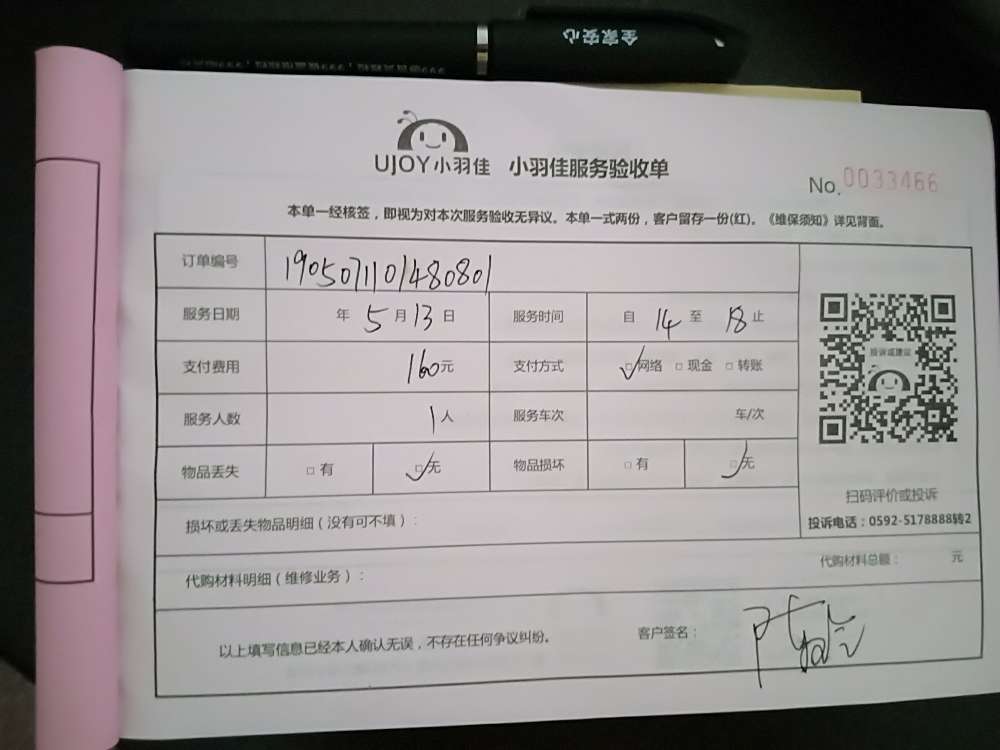 全家安心
UJOY小羽佳 小羽佳服务验收单
No.0033466
本单一经核签，即视为对本次服务验收无异议。本单一式两份，客户留存一份(红)。《维保须知》详见背面。
订单编号 1905071101480801
服务日期 年 5 月 13 日 服务时间 自 14 至 18 止
支付费用 160元 支付方式 ☑网络 □现金 □转账
服务人数 1人 服务车次 车/次
物品丢失 □有 ☑无 物品损坏 □有 ☑无
投诉或建议
扫码评价或投诉
投诉电话：0592-5178888转2
损坏或丢失物品明细（没有可不填）：
代购材料明细（维修业务）： 代购材料总额： 元
以上填写信息已经本人确认无误，不存在任何争议纠纷。 客户签名：